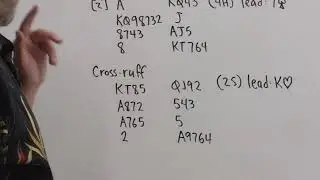 [2] A KQ43 (4H) lead: 7♀
KQ98732 J
8743 AJ5
8 KT764
Cross-ruff
KT85 QJ92 (2S) lead: K♡
A872 543
A765 5
2 A9764